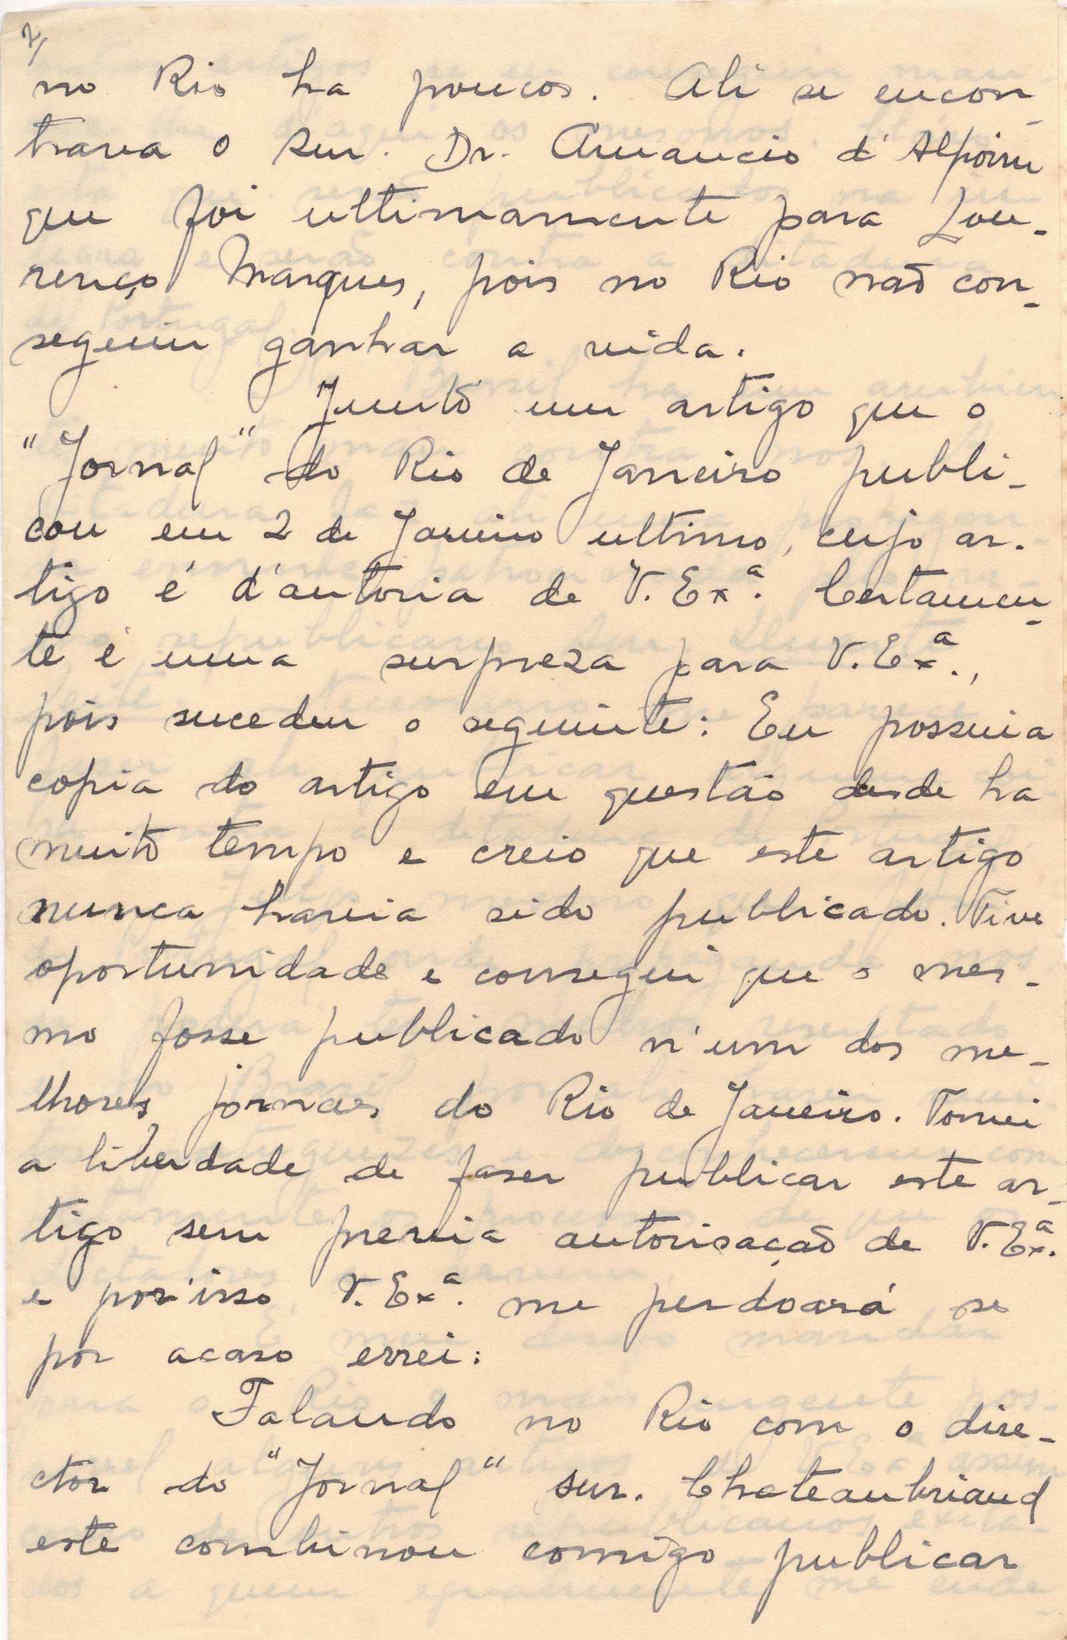 2/
no Rio ha poucos. Ali se encon-
trava o Snr. Dr. Amancio d'Alpoim
que foi ultimamente para Lou-
renço Marques, pois no Rio não con-
seguiu ganhar a vida.
Junto um artigo que o
"Jornal" do Rio de Janeiro publi-
cou em 2 de Janeiro ultimo, cujo ar-
tigo é d'autoria de V. Exª. Certamen-
te é uma surpreza para V. Exª.,
pois sucedeu o seguinte: Eu possuia
copia do artigo em questão desde ha
muito tempo e creio que este artigo
nunca havia sido publicado. Tive
oportunidade e consegui que o mes-
mo fosse publicado n'um dos me-
lhores jornaes do Rio de Janeiro. Tomei
a liberdade de faser publicar este ar-
tigo sem previa autorisação de V. Exª.
e por'isso V. Exª. me perdoará se
por acaso errei.
Falando no Rio com o dire-
ctor do "Jornal" snr. Chateaubriand
este combinou comigo publicar